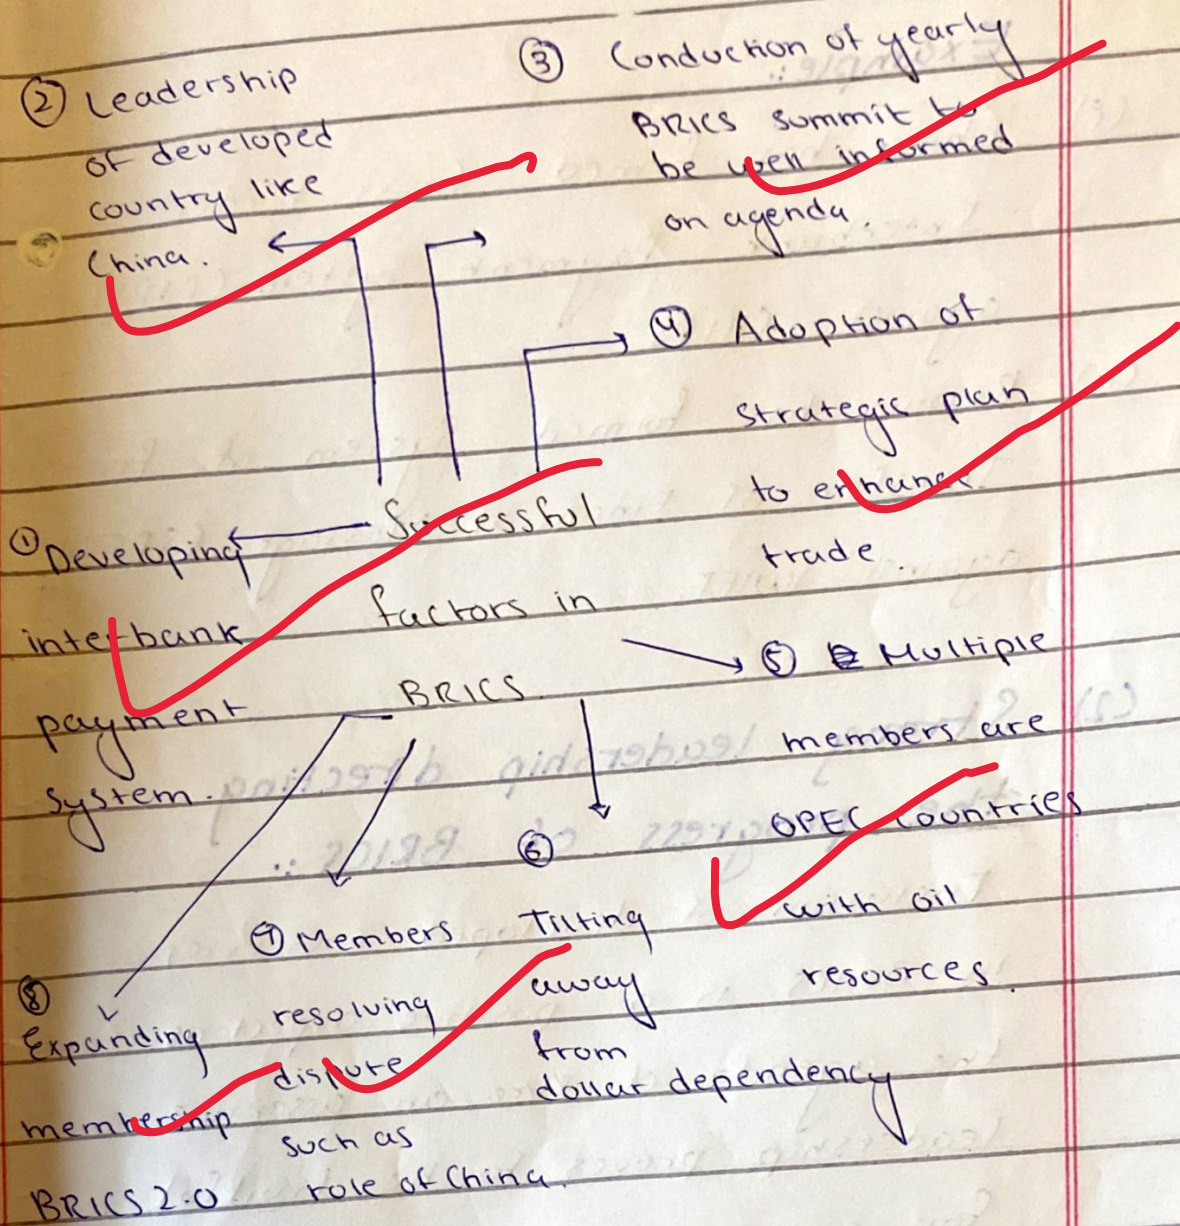 ② Leadership
of developed
country like
China.
③ Conduction of yearly
BRICS summit to
be well informed
on agenda.
④ Adoption of
strategic plan
to enhance
trade.
Successful
factors in
BRICS.
① Developing
interbank
payment
system.
⑤ Multiple
members are
OPEC countries
with oil
resources.
⑥
Tilting
away
from
dollar dependency
⑦ Members
resolving
dispute
such as
role of China.
⑧
Expanding
membership
BRICS 2.0